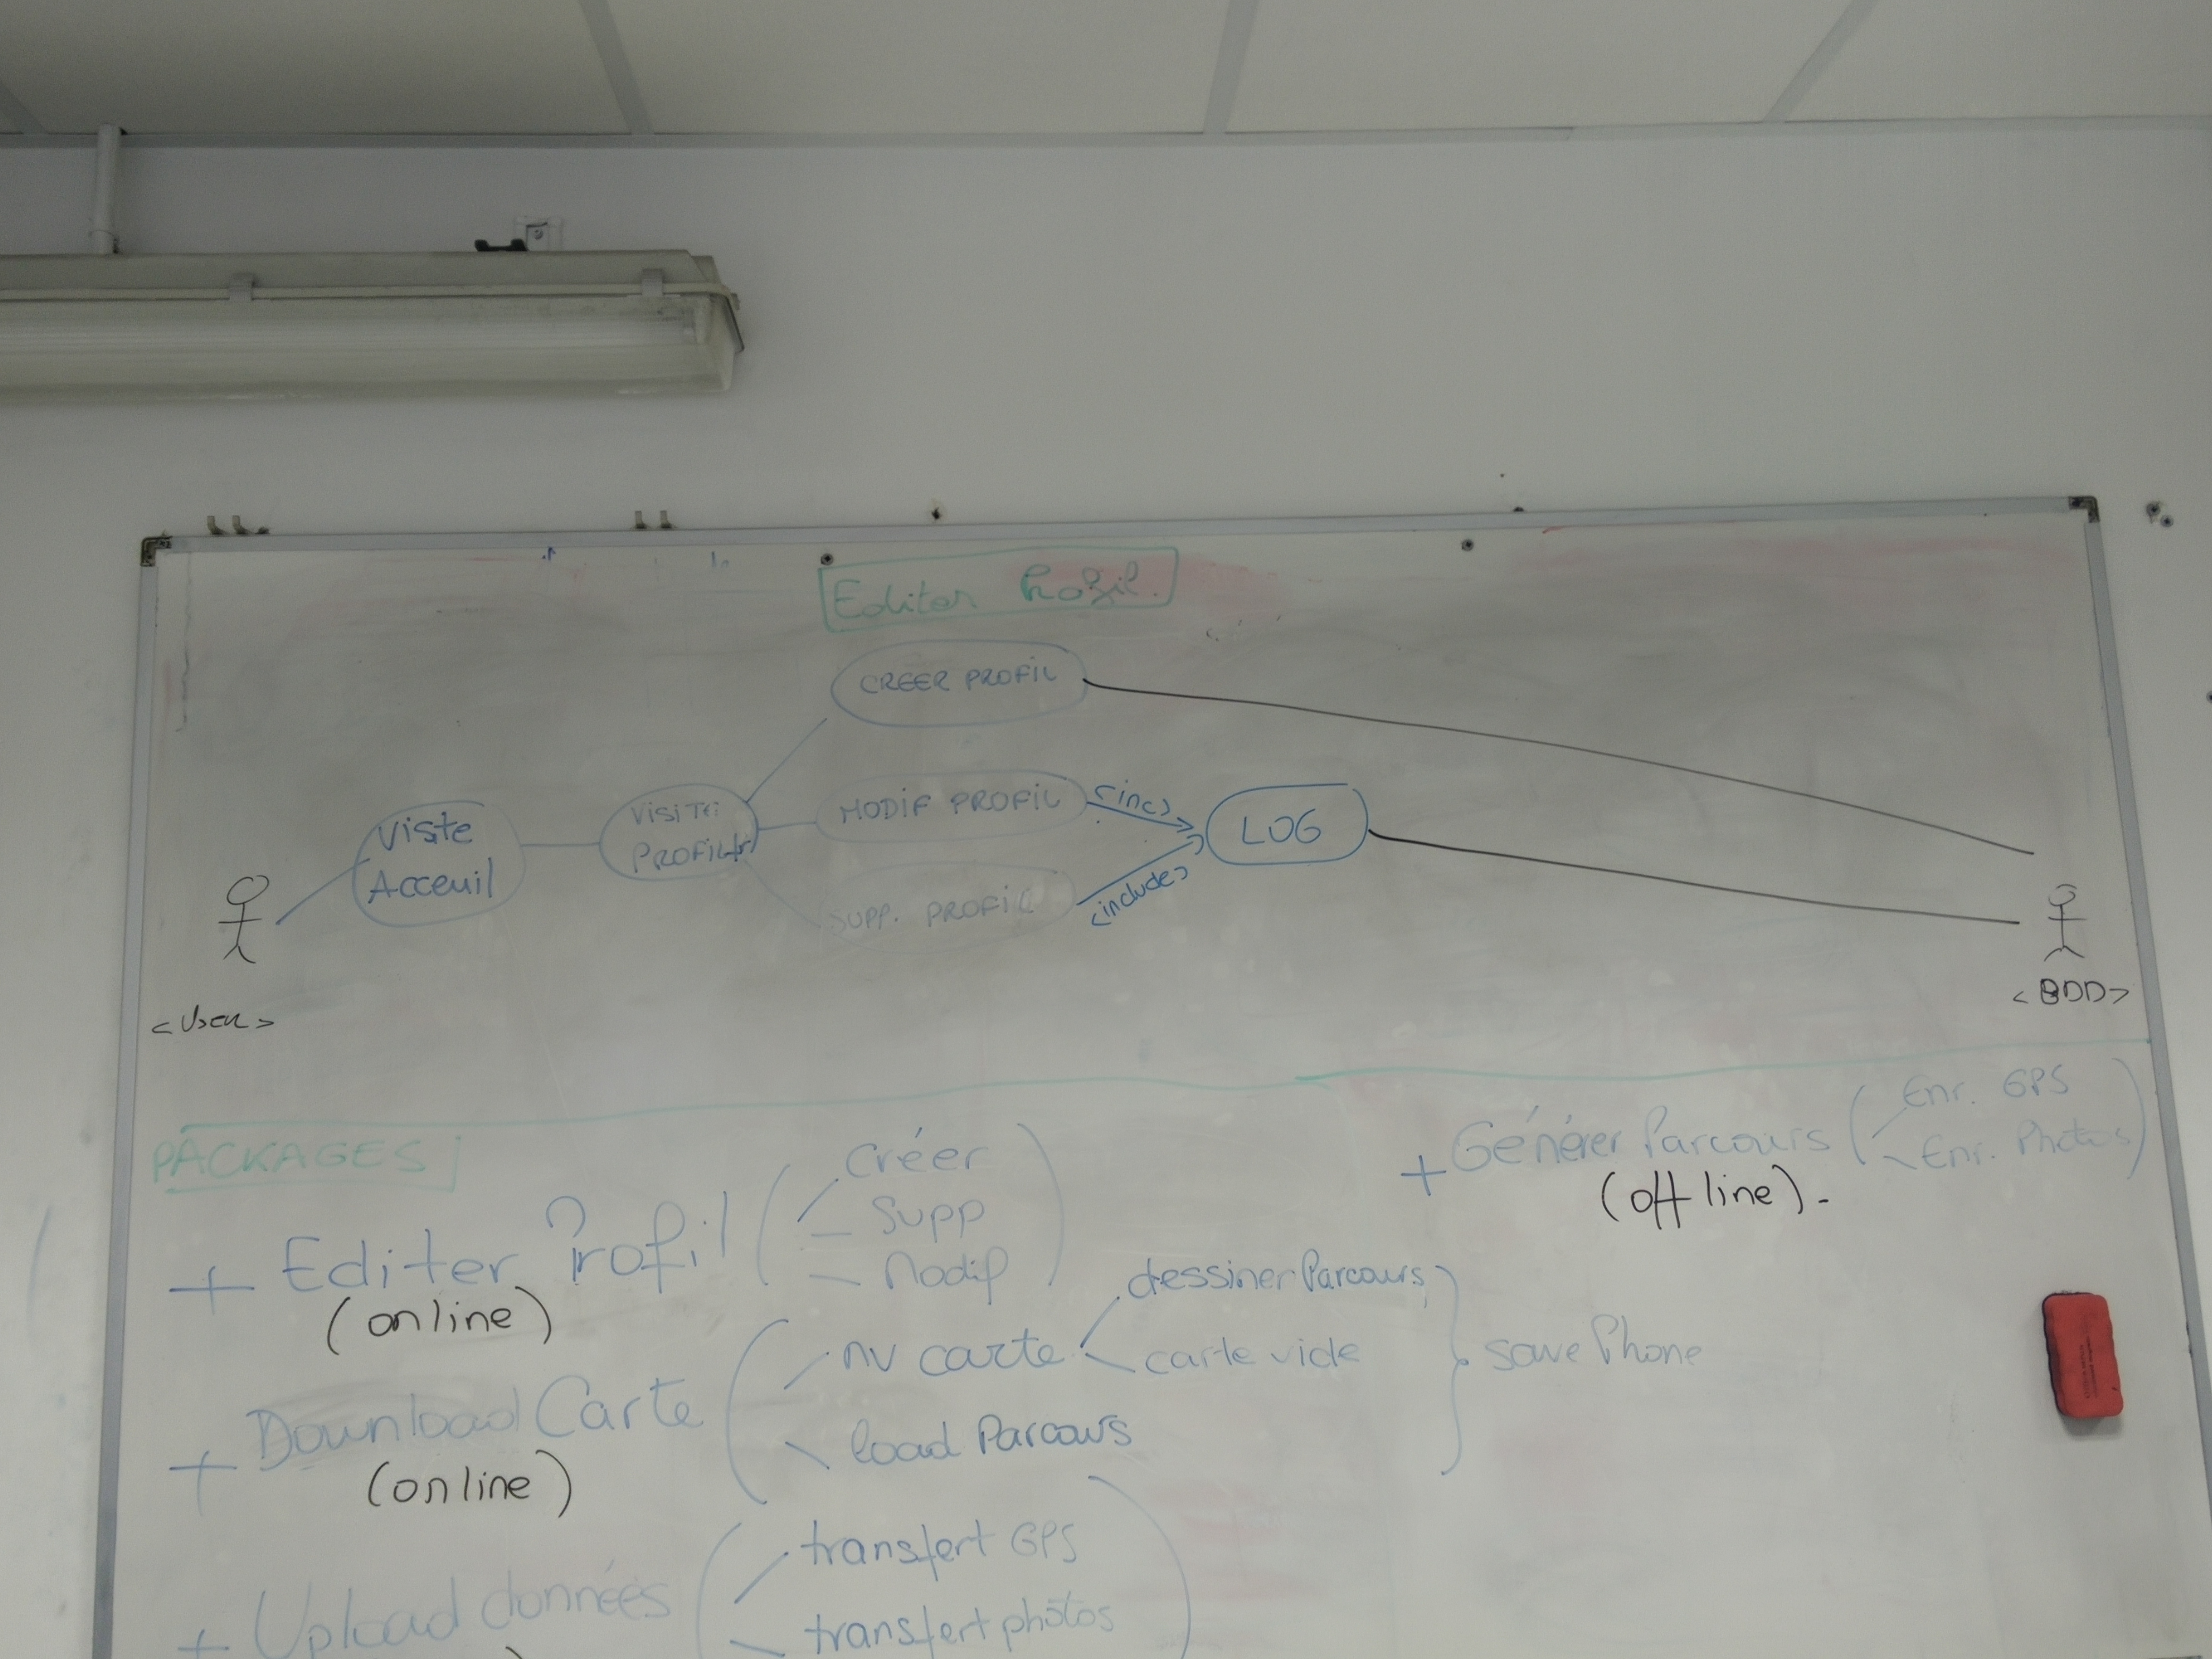 Editer Profil.
CREER PROFIL
MODIF PROFIL
<inc>
LOG
Viste
Acceuil
VISITE
SUPP. PROFIL
<include>
<User>
<BDD>
PACKAGES
+ Editer Profil
(online)
Créer
Supp
Modif
+ Générer Parcours
(off line).
Enr. GPS
Enr. Photos
+ Download Carte
(online)
nv carte
dessiner Parcours
carte vide
load Parcours
save Phone
+ Upload données
transfert GPS
transfert photos